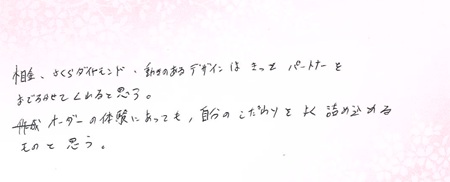 杢、さくらダイヤモンド、動きのあるデザインは きっと パートナーを
よろこばせてくれると思う。
オーダーの体験にあっても、自分のこだわりを よく詰め込める
ものと思う。